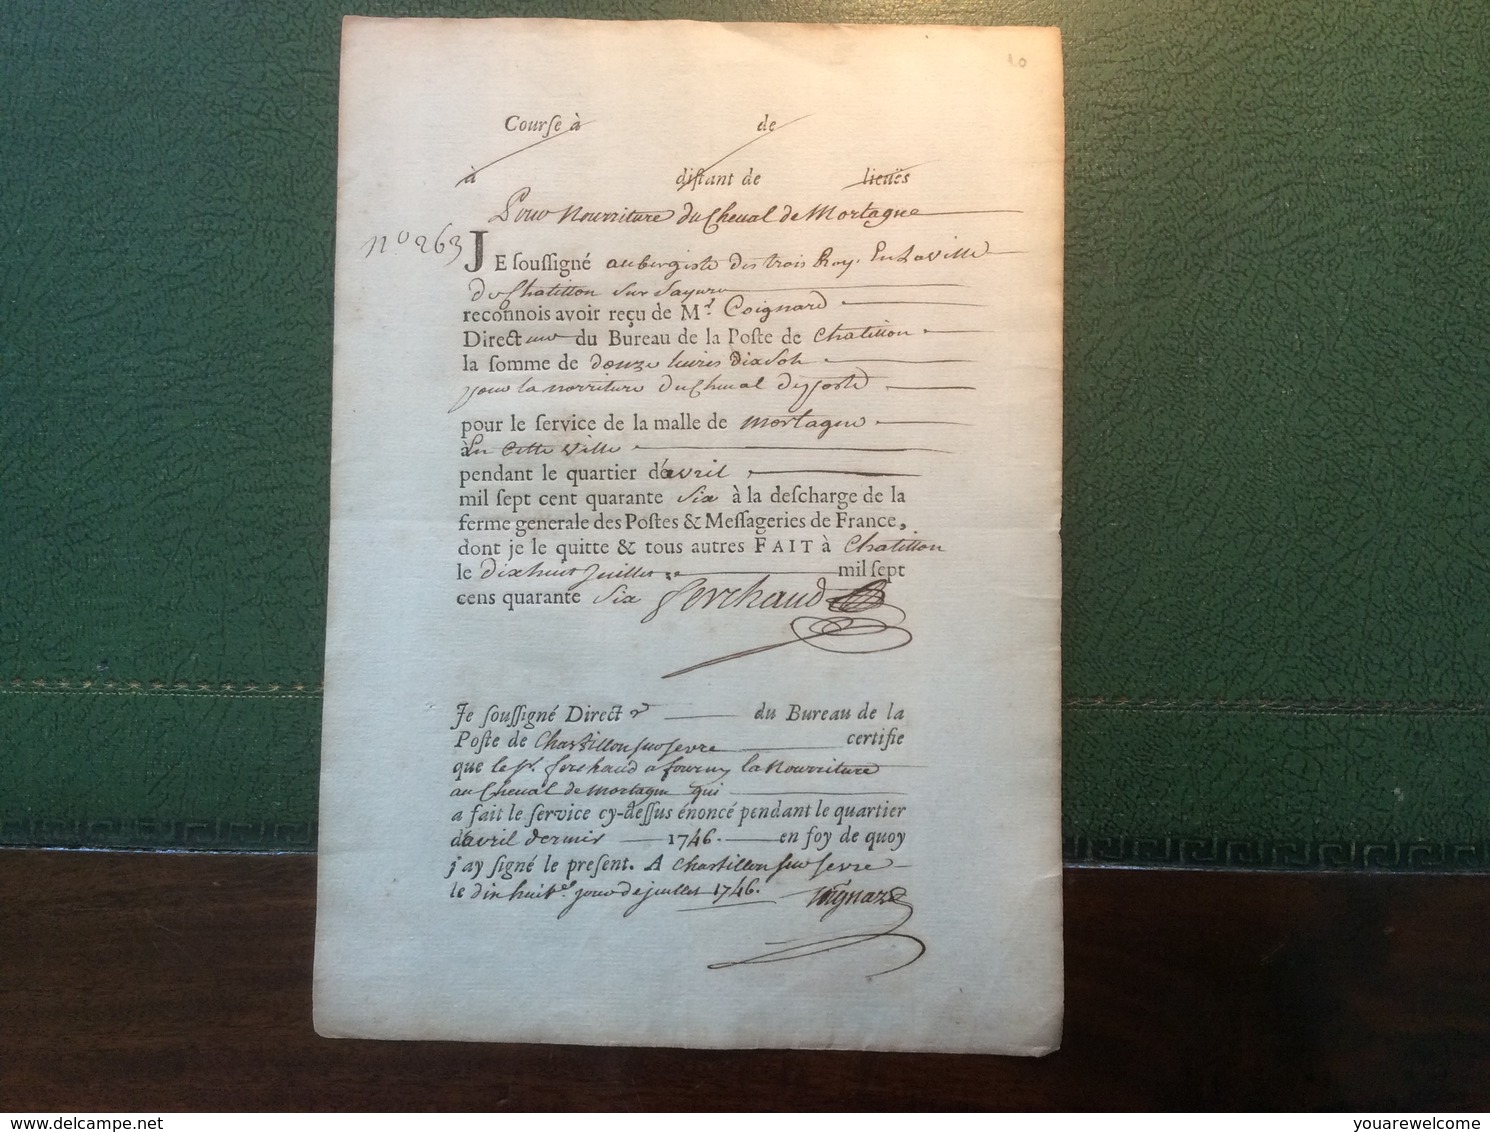 10
Courſe à de
à diſtant de lieuës
Pour Nourriture du Cheual de Mortagne
n° 263
JE ſouſſigné aubergiste des trois Roy. En La Ville
De Chatillon sur Sayure
reconnois avoir reçu de Mr. Coignard
Directeur du Bureau de la Poſte de Chatillon
la ſomme de douze liures dix sols
pour la norriture du Cheual de poste
pour le ſervice de la malle de mortagne
à En Cette Ville
pendant le quartier d'avril
mil ſept cent quarante Six à la deſcharge de la
ferme generale des Poſtes & Meſſageries de France,
dont je le quitte & tous autres FAIT à Chatillon
le Dixhuit Juillet mil ſept
cens quarante Six Ferchaud
Je ſouſſigné Directr du Bureau de la
Poſte de Chastillon sur sevre certifie
que le Sr. ferchaud a fourny la Nourriture
au Cheual de Mortagne qui
a fait le ſervice cy-deſſus énoncé pendant le quartier
d'avril dernier 1746. en foy de quoy
j'ay ſigné le preſent. A Chastillon sur sevre
le dix huite. jour de juillet 1746. Coignard
youarewelcome